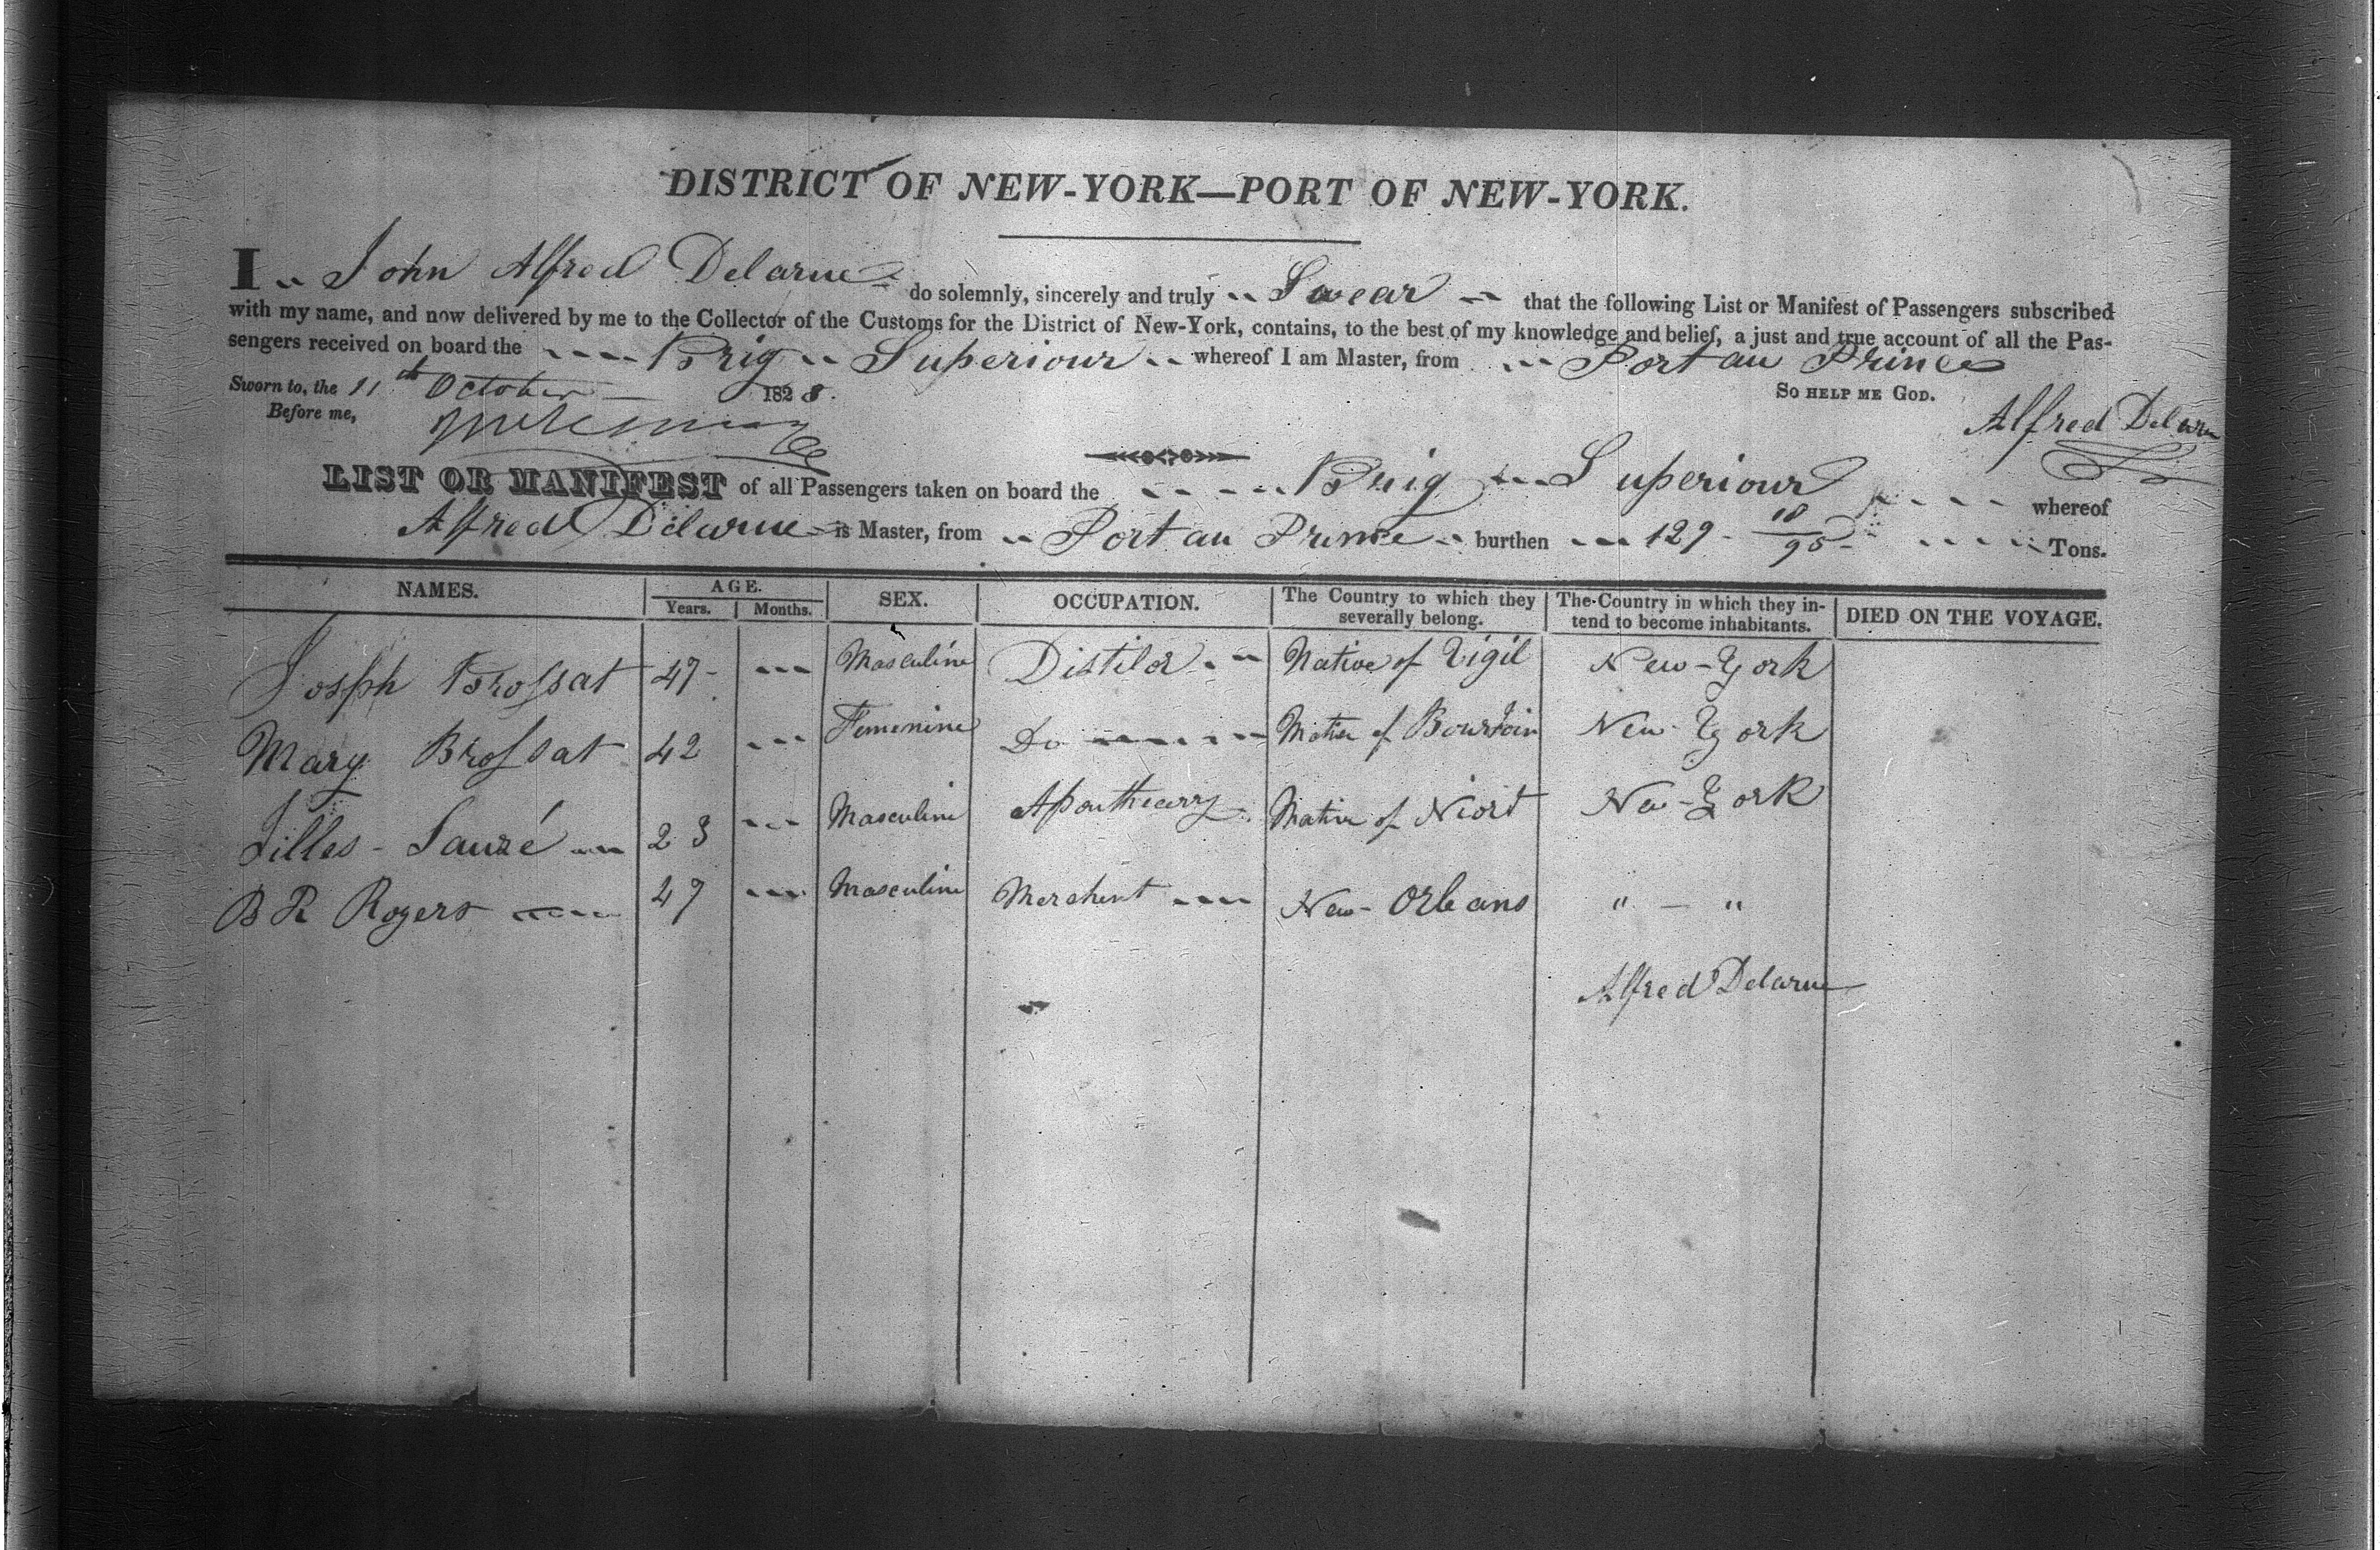 DISTRICT OF NEW-YORK—PORT OF NEW-YORK.
I John Alfred Delarue do solemnly, sincerely and truly Swear that the following List or Manifest of Passengers subscribed
with my name, and now delivered by me to the Collector of the Customs for the District of New-York, contains, to the best of my knowledge and belief, a just and true account of all the Pas-
sengers received on board the Brig Superiour whereof I am Master, from Port au Prince
Sworn to, the 11th October 1828. So HELP ME GOD.
Before me, Alfred Delarue
LIST OR MANIFEST of all Passengers taken on board the Brig Superiour whereof
Alfred Delarue is Master, from Port au Prince burthen 129 10/95 Tons.
NAMES. AGE. Years. Months. SEX. OCCUPATION. The Country to which they severally belong. The Country in which they in-tend to become inhabitants. DIED ON THE VOYAGE.
Joseph Brossat 47 Masculine Distilor Native of Vigil New-York
Mary Brossat 42 Femenine Do Native of New-York
Jilles - Sauzé 23 Masculine Apouthecarry Native of Niort New-York
B R Rogers 47 Masculine Merchent New-Orleans " — "
Alfred Delarue